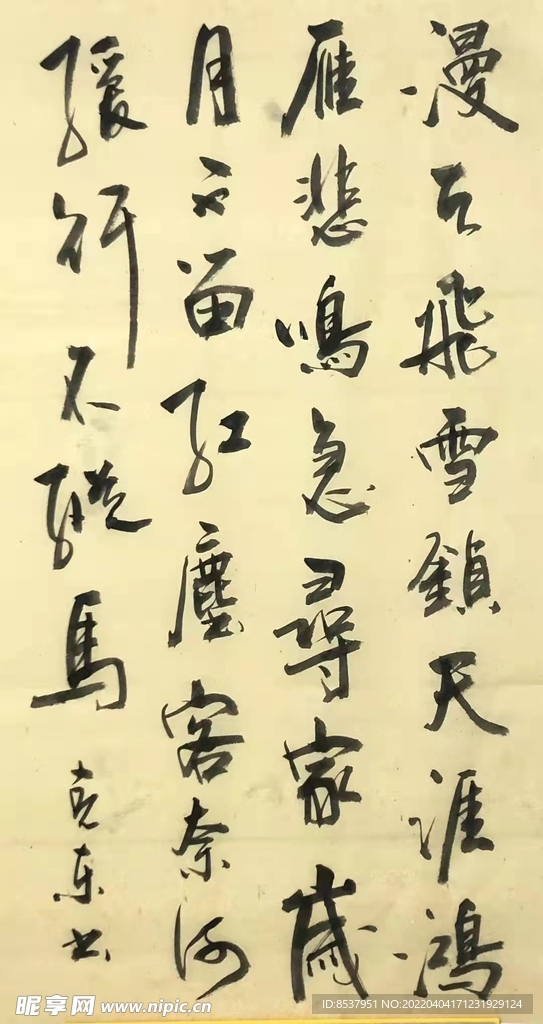 漫天飛雪鎖天涯鴻
雁悲鳴急尋家歲
月不留紅塵客奈何
緩行不縱馬
克東书
昵享网 www.nipic.cn
ID:8537951 NO:20220404171231929124